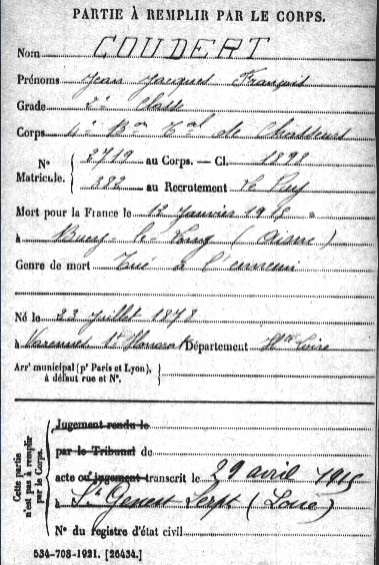 PARTIE À REMPLIR PAR LE CORPS.
Nom COUDERT
Prénoms Jean Jacques François
Grade 2e Classe
Corps 4e Bon Tal de Chasseurs
N° Matricule. 2719 au Corps. — Cl. 1898
382 au Recrutement Le Puy
Mort pour la France le 12 Janvier 1915
à Bucy le Long (Aisne)
Genre de mort Tué à l'ennemi
Né le 23 Juillet 1878
à Varennes St Honorat Département Hte Loire
Arrt municipal (pr Paris et Lyon), à défaut rue et N°.
Cette partie n'est pas à remplir par le Corps.
Jugement rendu le
par le Tribunal de
acte ou jugement transcrit le 29 avril 1915
à St Genest Lerpt (Loire)
N° du registre d'état civil
534-708-1921. [26434.]